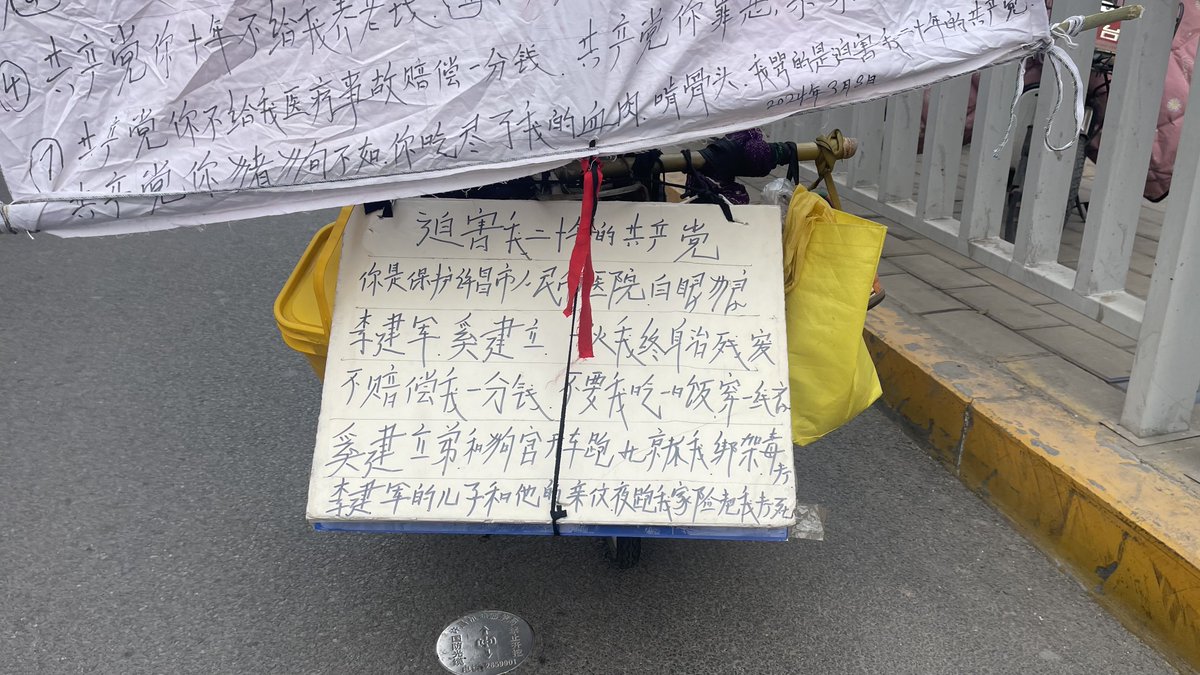 共产党你十年不给我养老钱.
④ 共产党你不给我医疗事故赔偿一分钱. 共产党你罪恶,
⑦ 共产党你猪狗不如.你吃尽了我的血肉, 啃骨头. 我骂的是迫害我二十年的共产党.
2024年3月8日
迫害我二十年的共产党
你是保护许昌市人民医院白眼狼
李建军.奚建立 我终身治残废
不赔偿我一分钱.不要我吃一口饭穿一线衣
奚建立弟和狗官开车跑北京抓我绑架毒打
李建军的儿子和他的亲仗夜跑我家险把我打死
国防光缆
禁止开挖
2859901